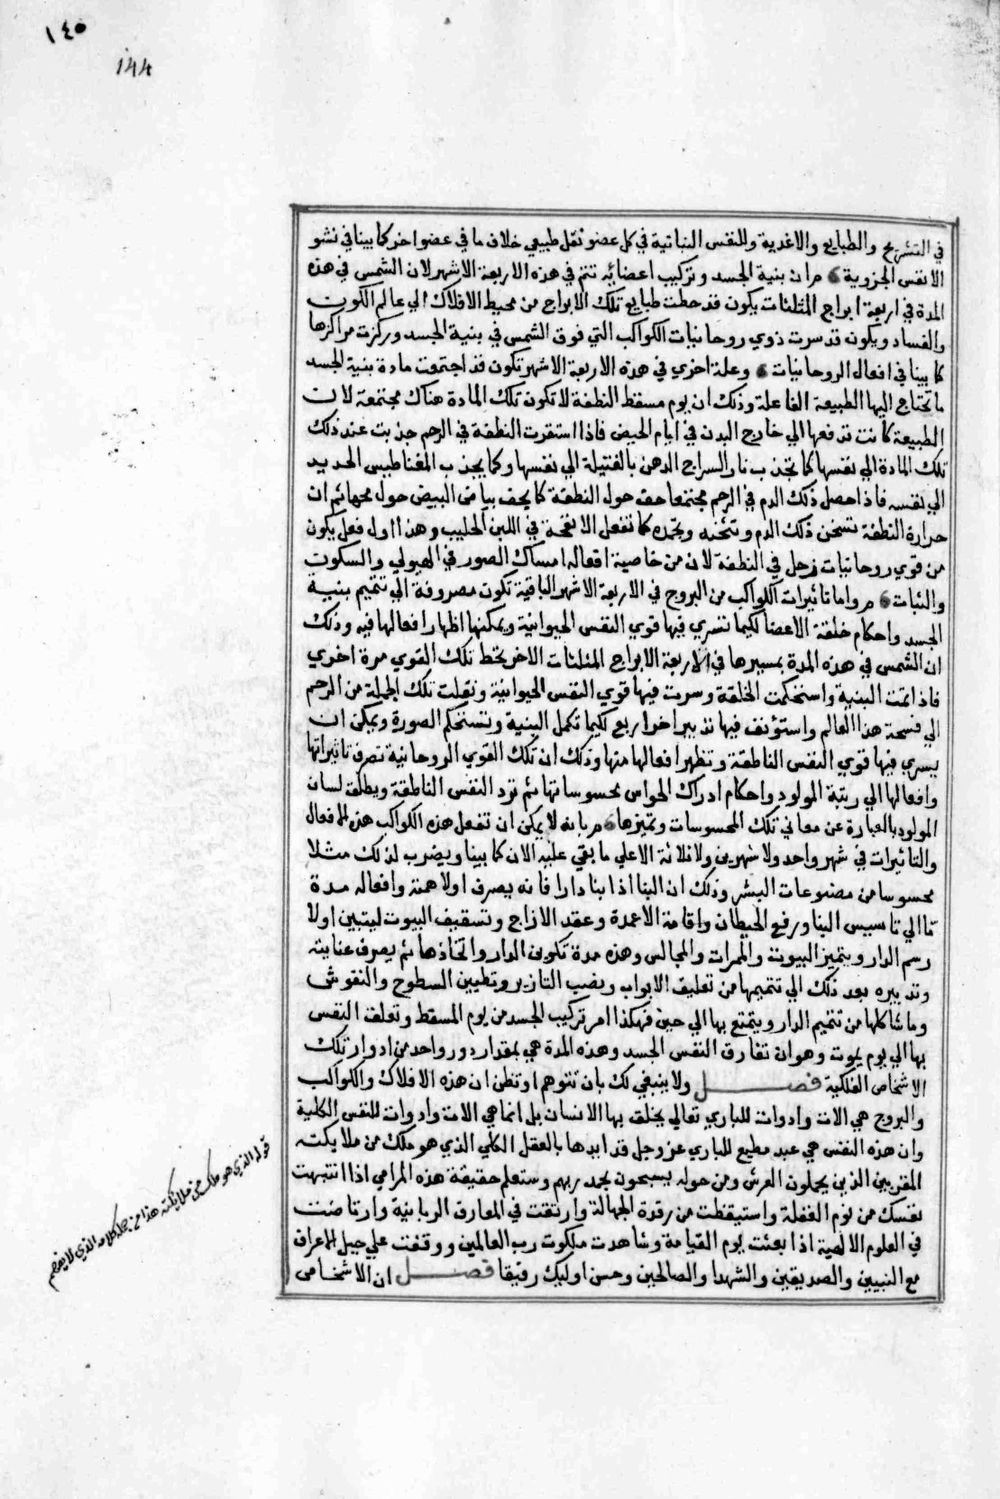 ١٤٥
١٤٤
في التشريح والطبايع والاغدية وللنفس النباتية في كل عضو فعل طبيعي خلاف ما في عضو اخر كما بينا في نشو
الانفس الجزوية ثم ان بنية الجسد وتركيب اعضايه تتم في هذه الاربعة الاشهر لان الشمس في هذه
المدة في اربعة ابراج المثلثات يكون قد حطت طبايع تلك الابراج من محيط الافلاك الي عالم الكون
والفساد ويكون قد سرت ذوي روحانيات الكواكب التي فوق الشمس في بنية الجسد وركزت مراكزها
كما بينا في افعال الروحانيات وعلة اخري في هذه الاربعة الاشهر تكون قد اجتمعت مادة بنية الجسد
ما تحتاج اليها الطبيعة الفاعلة وذلك ان يوم مسقط النطفة لا تكون تلك المادة هناك مجتمعة لان
الطبيعة كانت تدفعها الي خارج البدن في ايام الحيض فاذا استقرت النطفة في الرحم جذبت عند ذلك
تلك المادة الي نفسها كما تجذب نار السراج الدهن بالفتيلة الي نفسها وكما يجذب المغناطيس الحديد
الي نفسه فاذا حصل ذلك الدم في الرحم مجتمعا حف حول النطفة كما يحف بياض البيض حول محها ثم ان
حرارة النطفة تسخن ذلك الدم وتثخنه وتجمده كما تفعل الانفحة في اللبن الحليب وهذا اول فعل يكون
من قوي روحانيات زحل في النطفة لان من خاصية افعاله امساك الصور في الهيولي والسكون
والثبات واما تاثيرات الكواكب من البروج في الاربعة الاشهر الباقية تكون مصروفة الي تتميم بنية
الجسد واحكام خلقة الاعضا لكيما تسري فيها قوي النفس الحيوانية ويمكنها اظهار افعالها فيه وذلك
ان الشمس في هذه المدة بمسيرها في الاربعة الابراج المثلثات الاخر تحط تلك القوي مرة اخري
فاذا تمت البنية واستحكمت الخلقة وسرت فيها قوي النفس الحيوانية ونقلت تلك الجملة من الرحم
الي فسحة هذا العالم واستؤنف فيها تدبير اخر اربع لكيما تكمل البنية وتستحكم الصورة ويمكن ان
يسري فيها قوي النفس الناطقة وتظهر افعالها منها وذلك ان تلك القوي الروحانية تصرف تاثيراتها
وافعالها الي ربتة المولود واحكام ادراك الحواس محسوساتها ثم ترد النفس الناطقة ويطلق لسان
المولود بالعبارة عن معاني تلك المحسوسات وتميزها بانه لا يمكن ان تفعل هذه الكواكب هذه الافعال
والتاثيرات في شهر واحد ولا شهرين ولا ثلاثة الاعلي ما بقي عليه الان كما بينا ويضرب لذلك مثلا
محسوسا من مصنوعات البشر وذلك ان البنا اذا بنا دارا فانه يصرف اولا همته وافعاله مدة
ما الي تاسيس البنا ورفع الحيطان واقامة الاعمدة وعقد الازاج وتسقيف البيوت ليتبين اولا
رسم الدار ويتميز البيوت والممرات والمجالس وهذه مدة تكوين الدار واتخاذها ثم يصرف عنايته
وتدبيره بعد ذلك الي تتميمها من تعليق الابواب ونصب التازير وتطيين السطوح والنقوش
وما شاكلها من تتميم الدار ويتمتع بها الي حين فهكذا امر تركيب الجسد من يوم المسقط وتعلف النفس
بها الي يوم يموت وهو ان تفارق النفس الجسد وهذه المدة هي بمقدار دور واحد من ادوار تلك
الاشخاص الفلكية فصل ولا ينبغي لك بان تتوهم او تظن ان هذه الافلاك والكواكب
والبروج هي الات وادوات للباري تعالي يخلق بها الانسان بل انما هي الات وادوات للنفس الكلية
وان هذه النفس هي عبد مطيع للباري عز وجل قد ايدها بالعقل الكلي الذي هو ملك من ملايكته
المقربين الذين يحملون العرش ومن حوله يسبحون بحمد ربهم وستعلم حقيقة هذه المرامي اذا انتبهت
نفسك من نوم الغفلة واستيقظت من رقدة الجهالة وارتقت في المعارف الربانية وارتاضت
في العلوم الالهية اذا بعثت يوم القيامة وشاهدت ملكوت رب العالمين ووقفت علي جبل الاعراف
مع النبيين والصديقين والشهدا والصالحين وحسن اوليك رفيقا فصل ان الاشخاص
قوله الذي هو ملك من ملايكته هذا من جملة كلامه الذي لا يفهم